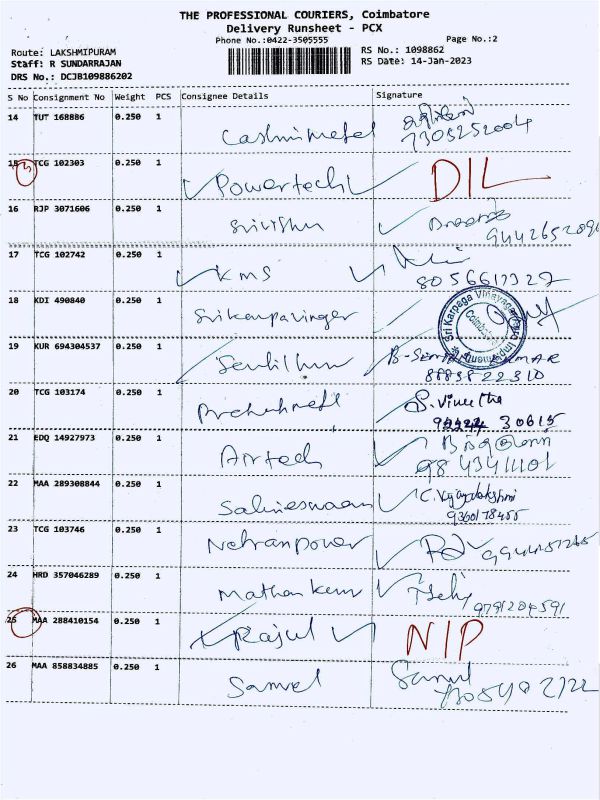 THE PROFESSIONAL COURIERS, Coimbatore
Delivery Runsheet - PCX
Phone No.:0422-3505555
Page No.:2
Route: LAKSHMIPURAM
Staff: R SUNDARRAJAN
DRS No.: DCJB109886202
RS No.: 1098862
RS Date: 14-Jan-2023
S No Consignment No Weight PCS Consignee Details Signature
14 TUT 168886 0.250 1 Cashmimetal
7305252004
15 TCG 102303 0.250 1 Powertech DIL
16 RJP 3071606 0.250 1 Srivishu
17 TCG 102742 0.250 1 KMS
8056617327
18 KDI 490840 0.250 1
Sri Karpaga Vinayagar
Coimbatore
19 KUR 694304537 0.250 1 Senthil
8883822310
20 TCG 103174 0.250 1 S. Vineetha
30615
21 EDQ 14927973 0.250 1 Airtech
9843411101
22 MAA 289308844 0.250 1 C. Vijayalakshmi
23 TCG 103746 0.250 1 Netranpower
24 HRD 357046289 0.250 1
9791204591
25 MAA 288410154 0.250 1 Rajul NIP
26 MAA 858834885 0.250 1 Samuel